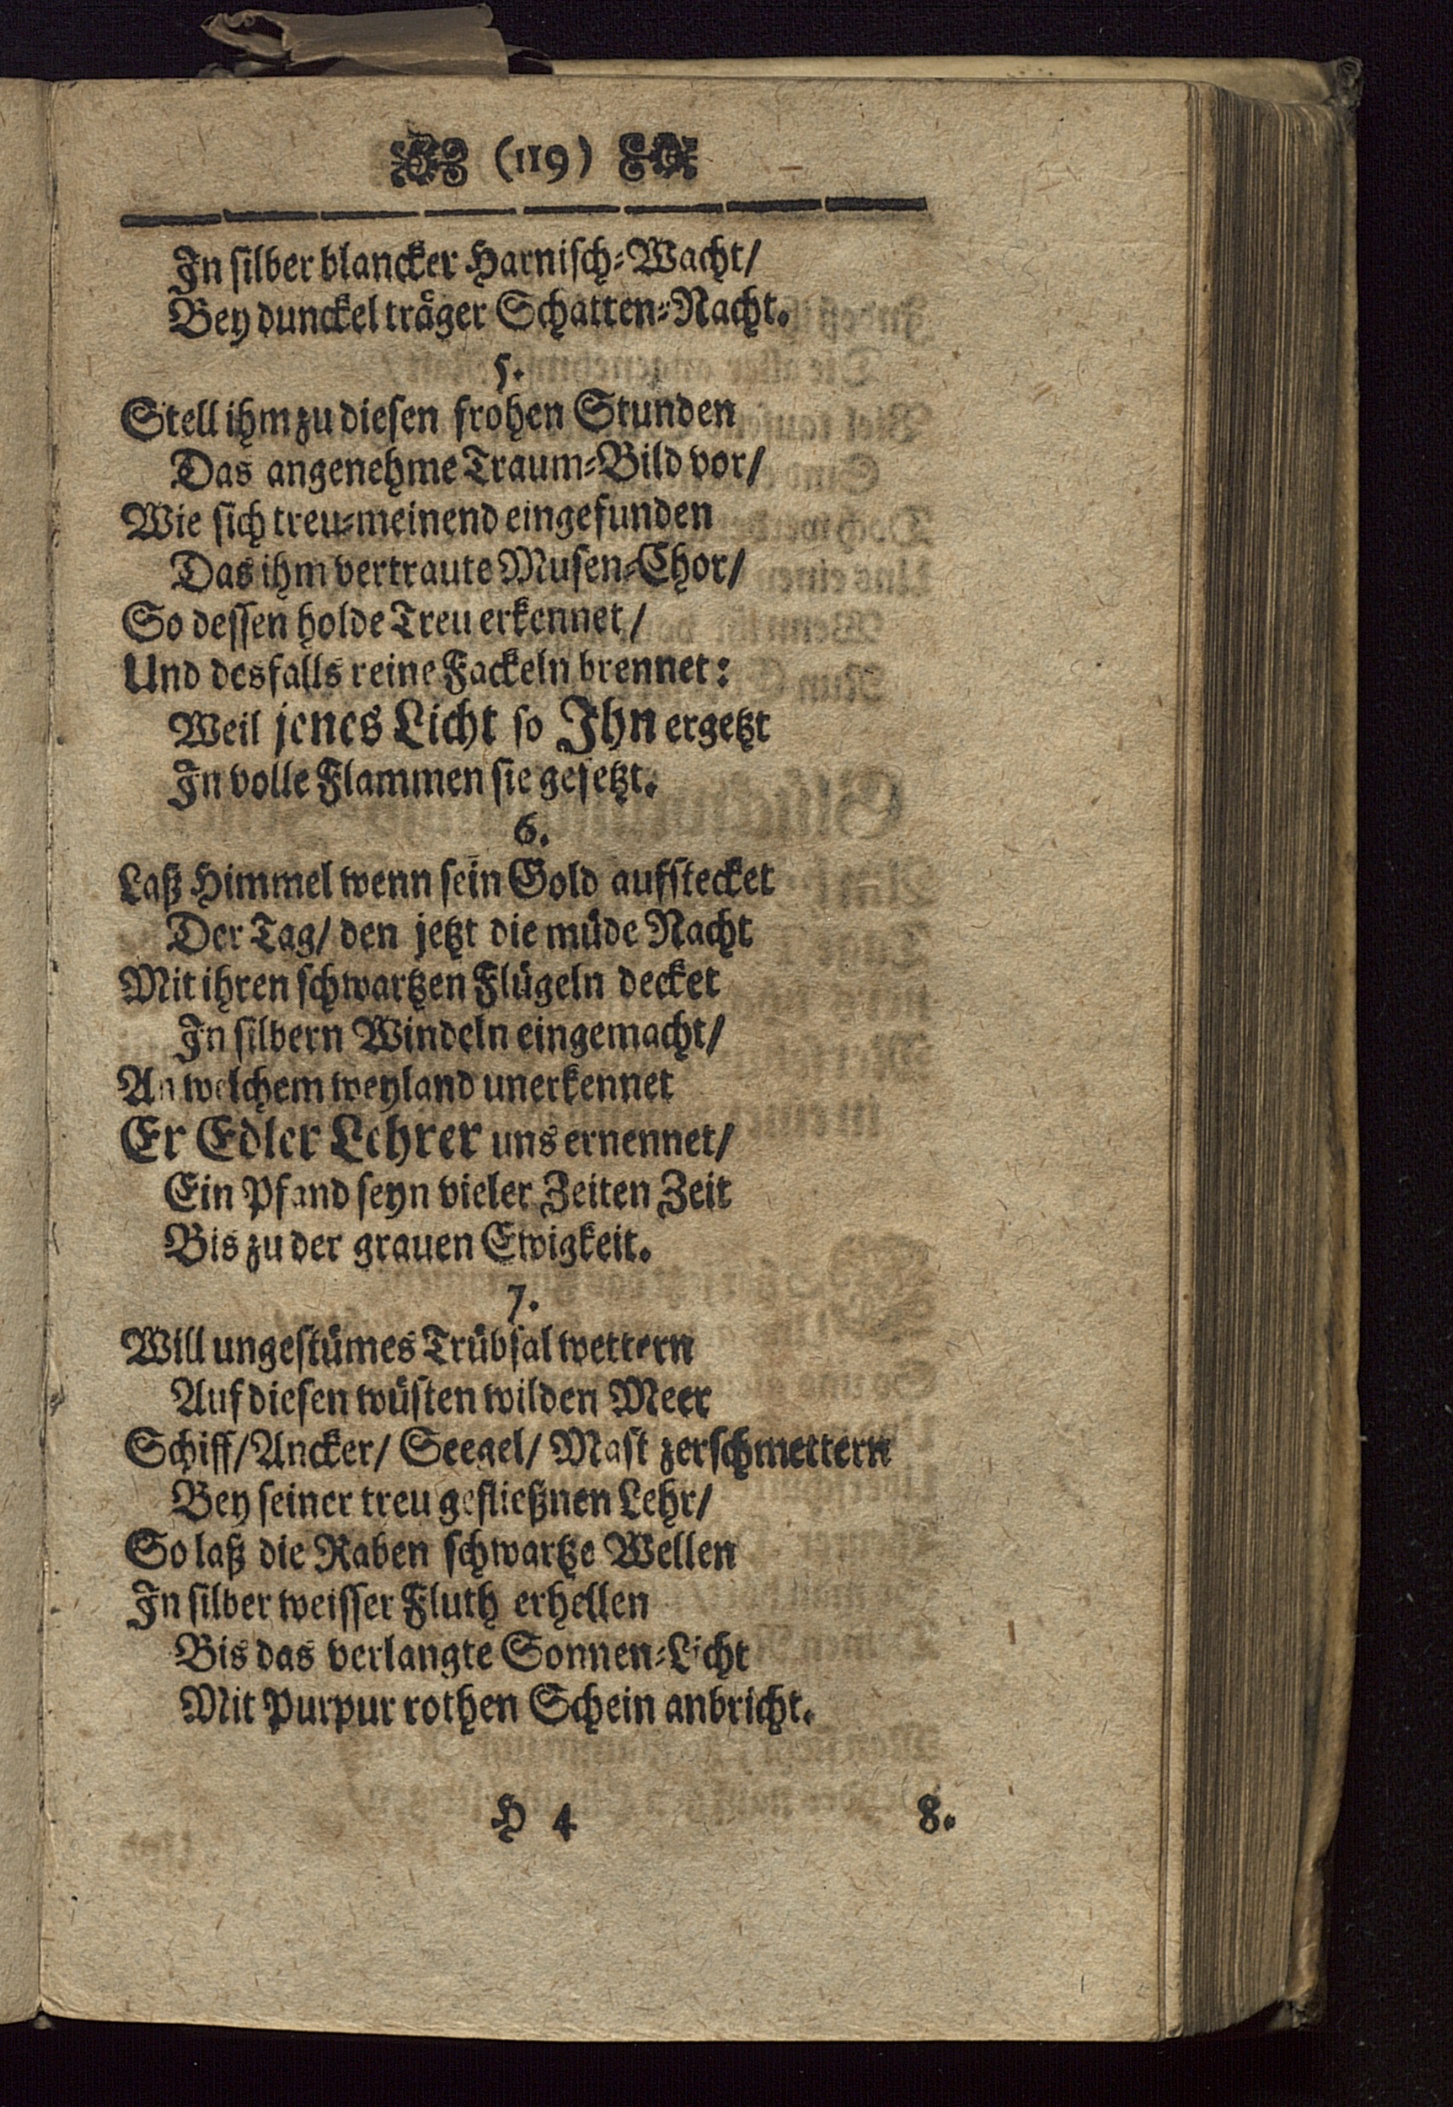 (119)
In silber blancker Harnisch-Wacht/
Bey dunckel träger Schatten-Nacht.
5.
Stell ihm zu diesen frohen Stunden
Das angenehme Traum-Bild vor/
Wie sich treu-meinend eingefunden
Das ihm vertraute Musen-Chor/
So dessen holde Treu erkennet/
Und desfalls reine Fackeln brennet:
Weil jenes Licht so Ihn ergetzt
In volle Flammen sie gesetzt.
6.
Laß Himmel wenn sein Gold aufstecket
Der Tag/ den jetzt die müde Nacht
Mit ihren schwartzen Flügeln decket
In silbern Windeln eingemacht/
An welchem weyland unerkennet
Er Edler Lehrer uns ernennet/
Ein Pfand seyn vieler Zeiten Zeit
Bis zu der grauen Ewigkeit.
7.
Will ungestümes Trübsal wettern
Auf diesen wüsten wilden Meer
Schiff/ Ancker/ Seegel/ Mast zerschmettern
Bey seiner treu gefließnen Lehr/
So laß die Raben schwartze Wellen
In silber weisser Fluth erhellen
Bis das verlangte Sonnen-Licht
Mit Purpur rothen Schein anbricht.
H 4 8.